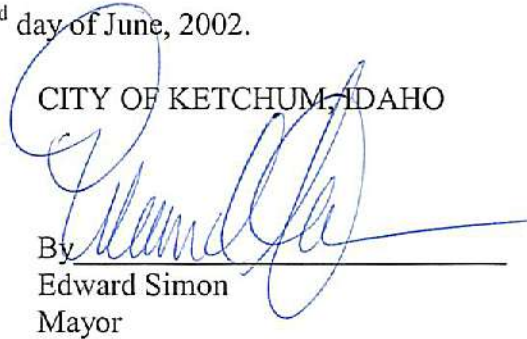 d day of June, 2002.
CITY OF KETCHUM, IDAHO
By
Edward Simon
Mayor